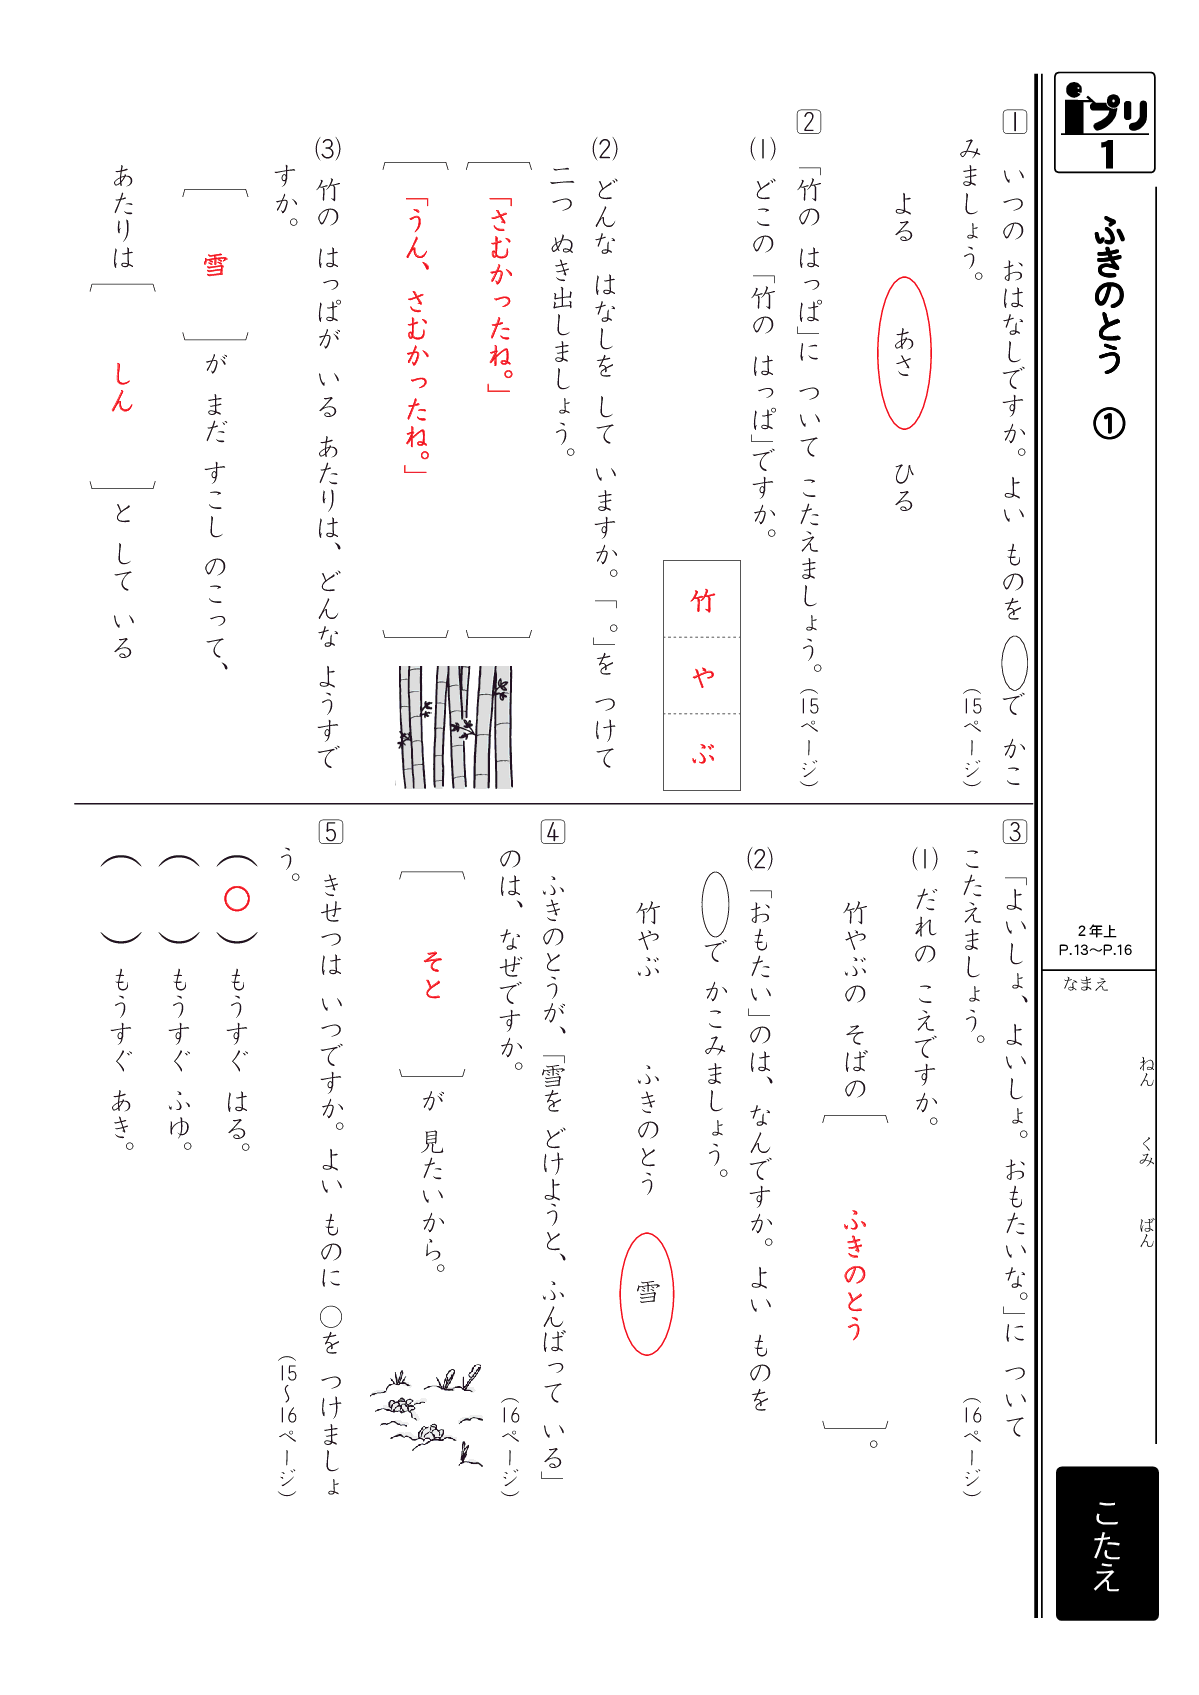 iプリ
1
ふきのとう ①
2年上
P.13〜P.16
なまえ
ねん くみ ばん
こたえ
1 いつの おはなしですか。よい ものを ◯で かこ
みましょう。 (15ページ)
よる あさ ひる
2 「竹の はっぱ」に ついて こたえましょう。(15ページ)
(1) どこの「竹の はっぱ」ですか。
竹やぶ
(2) どんな はなしを して いますか。「 。」を つけて
二つ ぬき出しましょう。
「さむかったね。」
「うん、さむかったね。」
(3) 竹の はっぱが いる あたりは、どんな ようすで
すか。
雪 が まだ すこし のこって、
あたりは しん と して いる
3 「よいしょ、よいしょ。おもたいな。」に ついて
こたえましょう。 (16ページ)
(1) だれの こえですか。
竹やぶの そばの ふきのとう 。
(2) 「おもたい」のは、なんですか。よい ものを
◯で かこみましょう。
竹やぶ ふきのとう 雪
4 ふきのとうが、「雪を どけようと、ふんばって いる」
のは、なぜですか。 (16ページ)
そと が 見たいから。
5 きせつは いつですか。よい ものに ○を つけましょ
う。 (15〜16ページ)
(○) もうすぐ はる。
( ) もうすぐ ふゆ。
( ) もうすぐ あき。